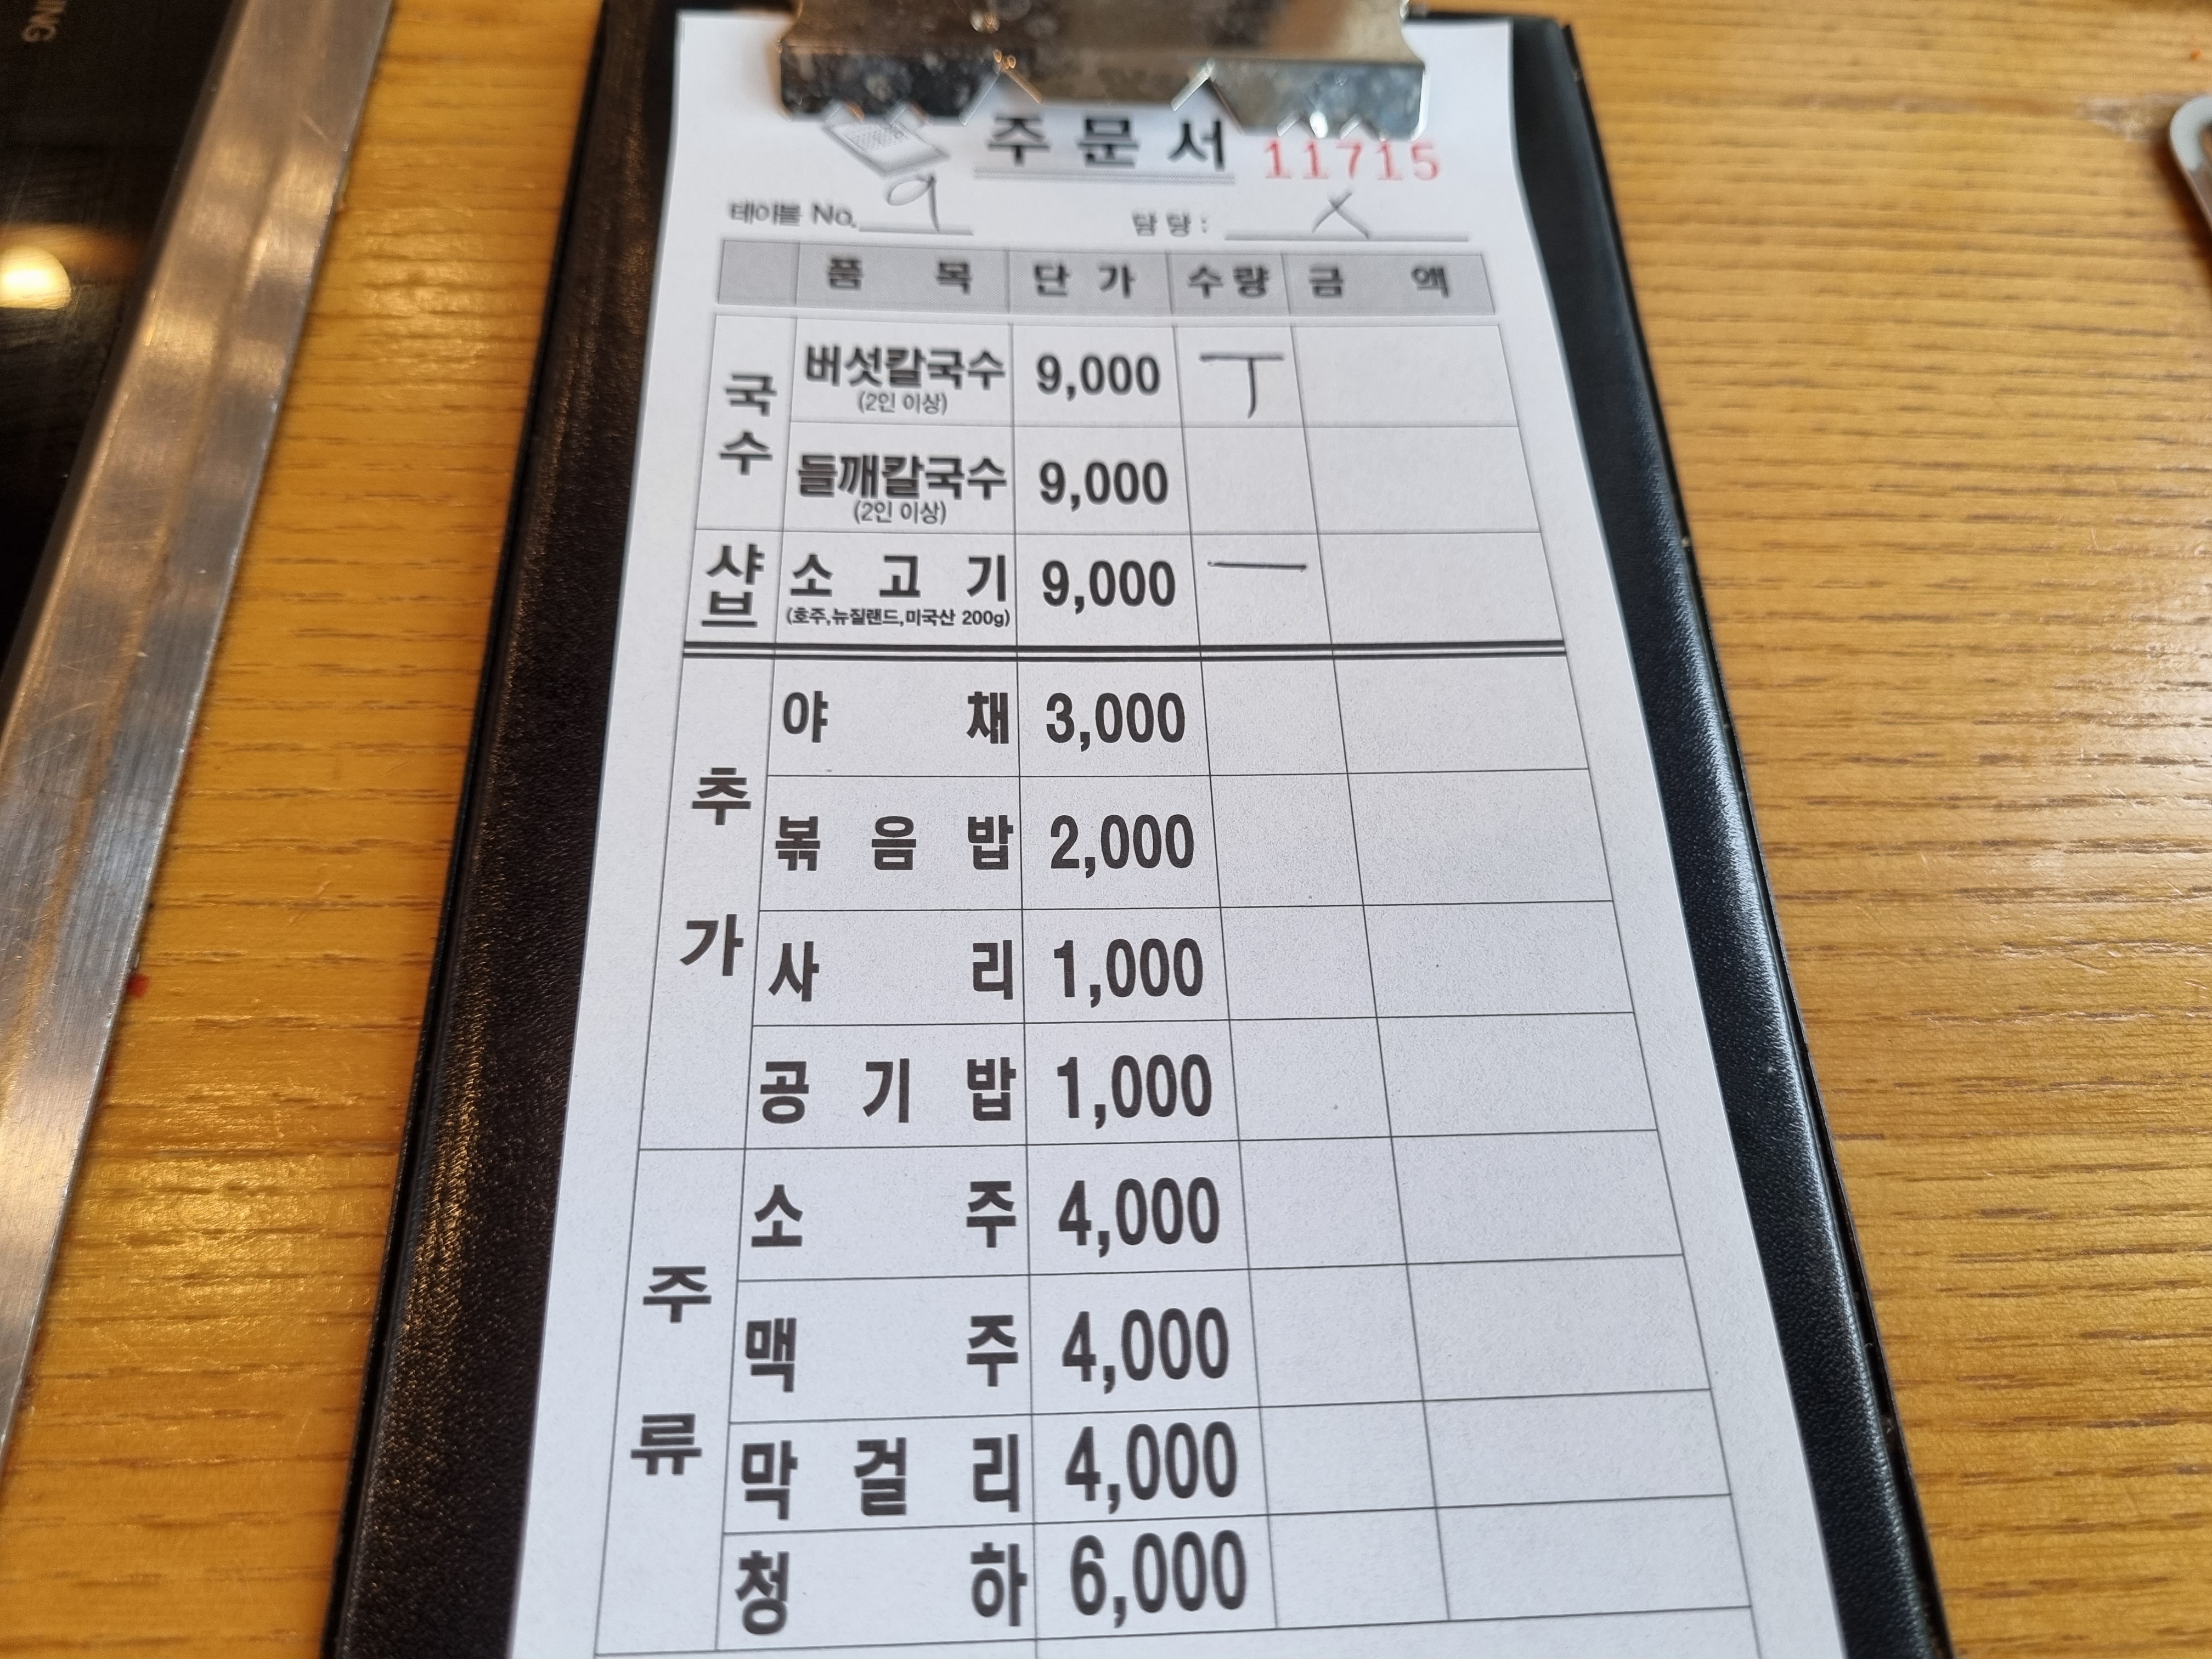 주문서 11715
테이블 No. 9 담당 : X
품목 단가 수량 금액
국수
버섯칼국수 9,000 丅
(2인 이상)
들깨칼국수 9,000
(2인 이상)
샤브
소고기 9,000 一
(호주,뉴질랜드,미국산 200g)
추가
야채 3,000
볶음밥 2,000
사리 1,000
공기밥 1,000
주류
소주 4,000
맥주 4,000
막걸리 4,000
청하 6,000